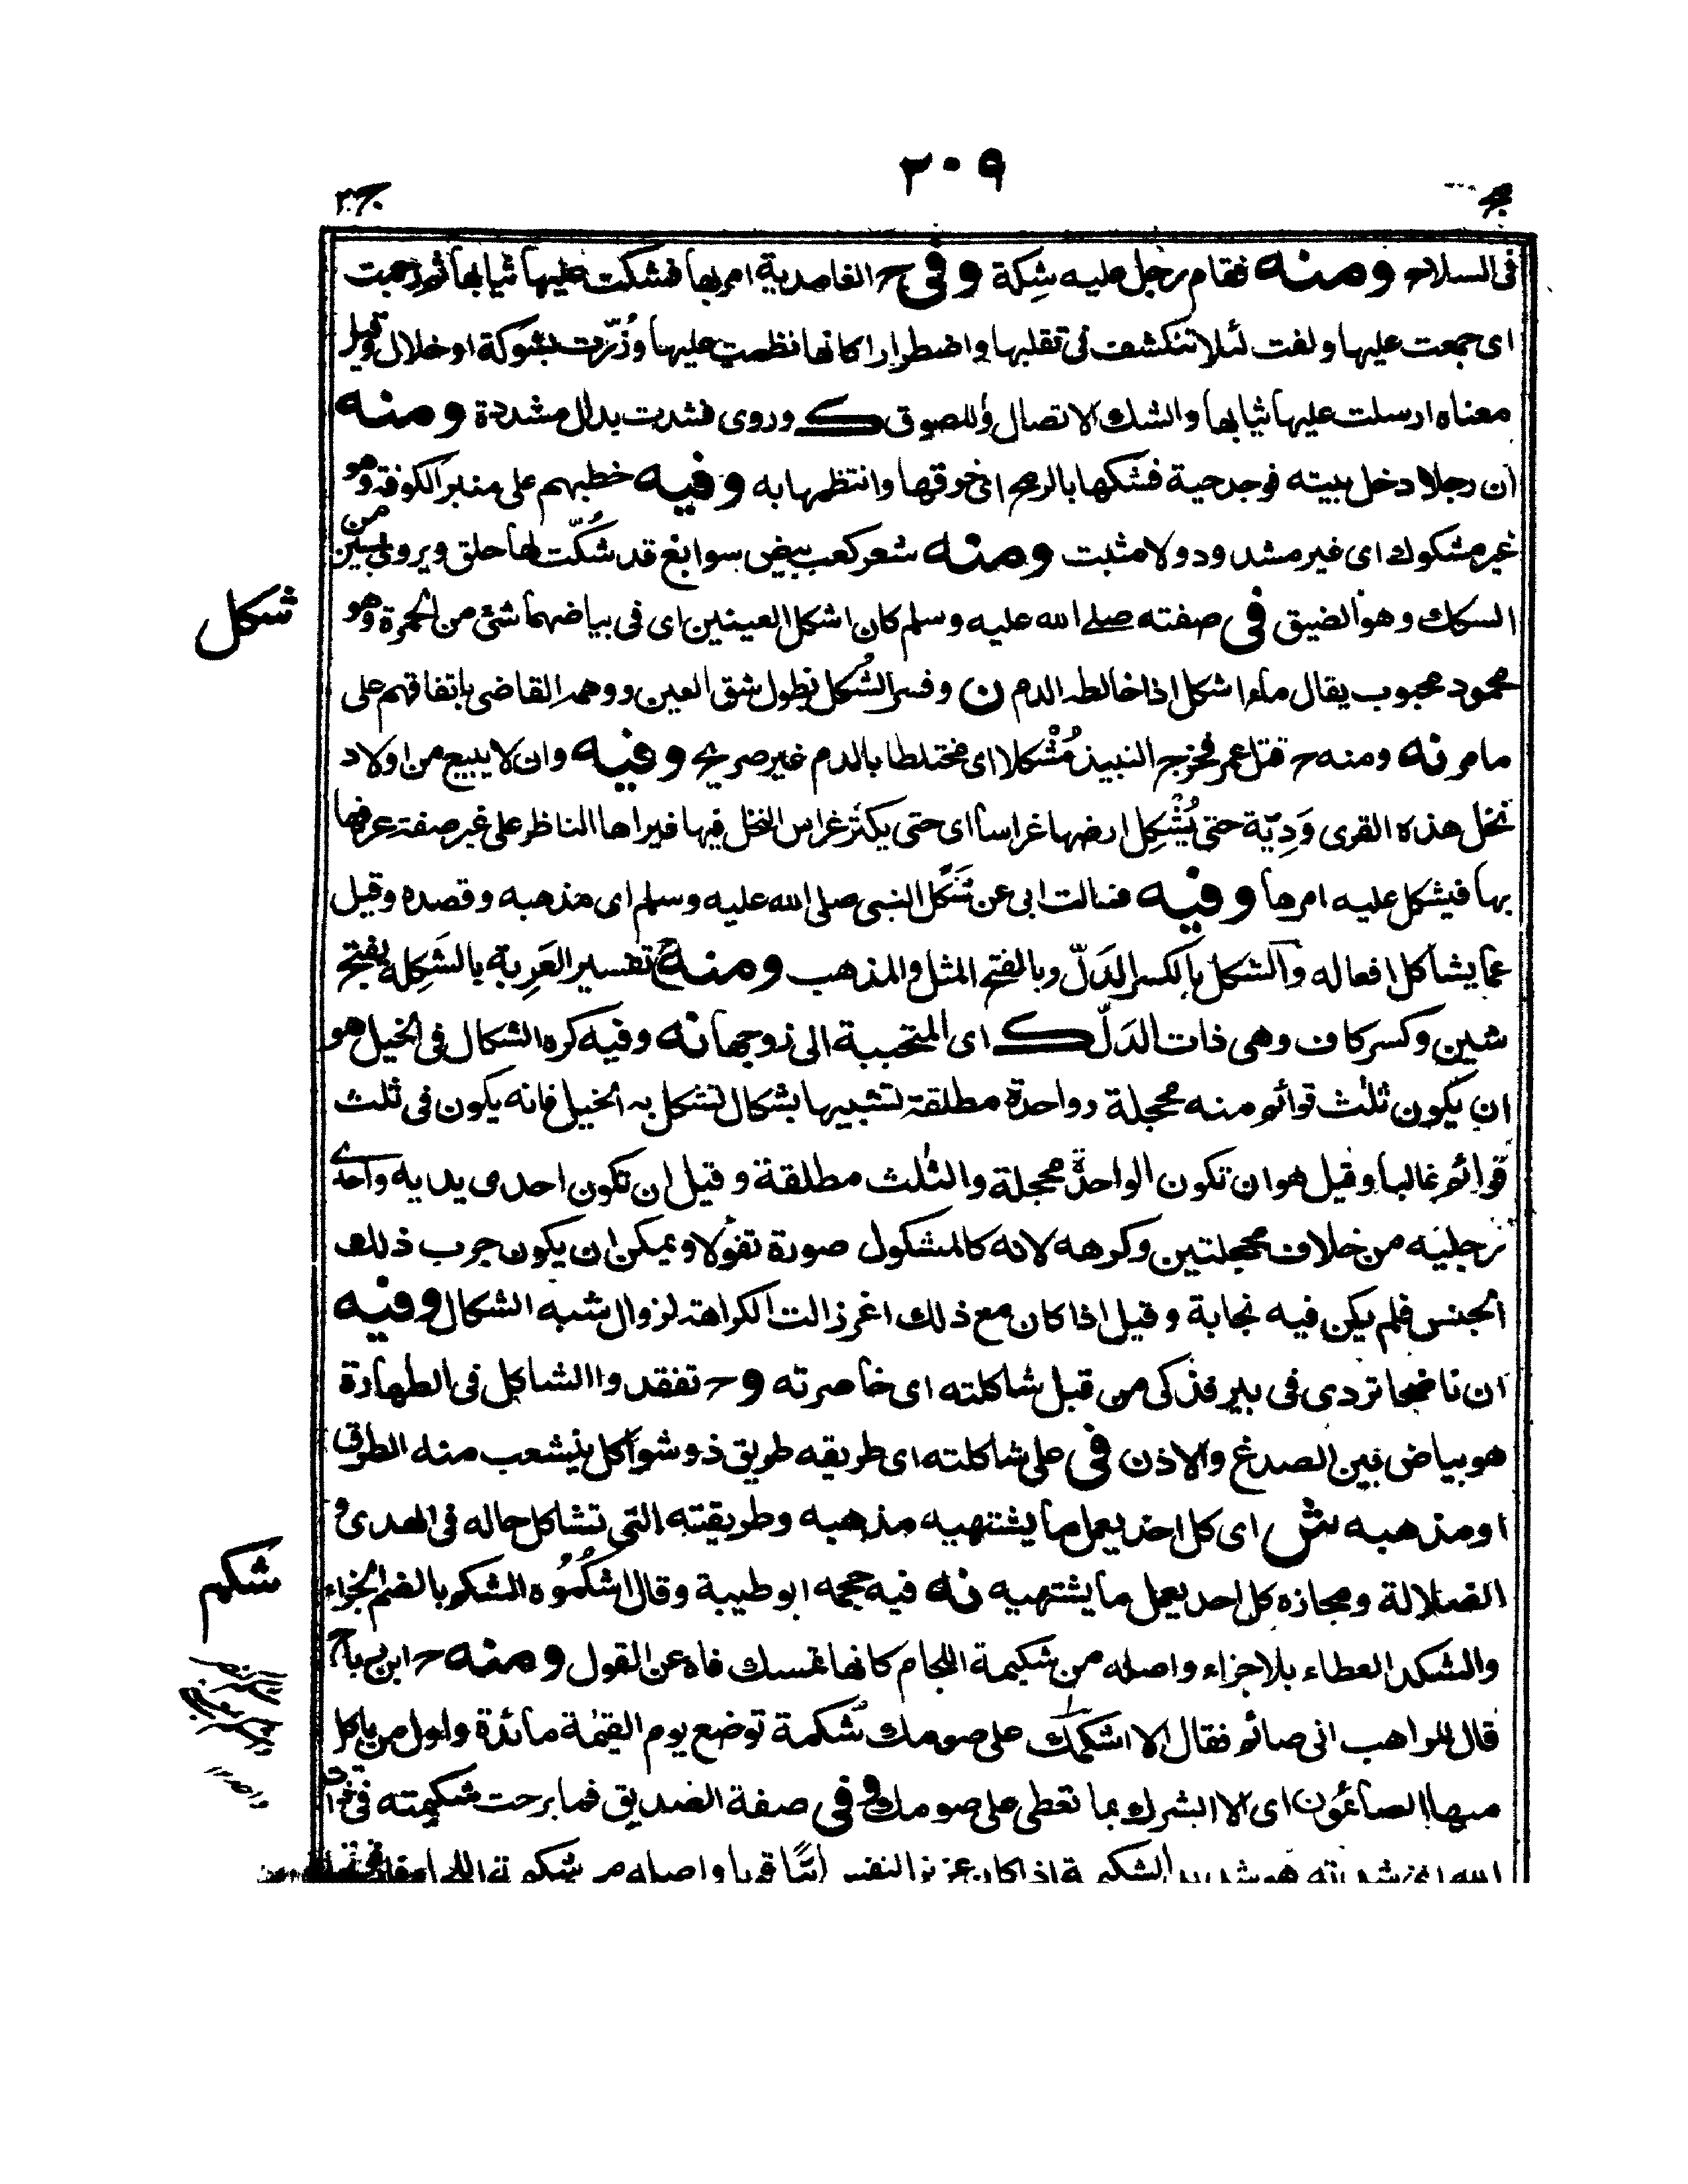 ٢٠٩
في السلاح ومنه فقام رجل عليه شكة وفي ح الغامدية امر بها فشكت عليها ثيابها ثم رجمت
اى جمعت عليها ولفت لئلا تنكشف في تقلبها واضطرارا كانها نظمت عليها وزُرّت بشوكة او خلال وقيل
معناه ارسلت عليها ثيابها والشك الاتصال واللصوق ك وروى فشدت بدال مشددة ومنه
ان رجلا دخل بيته فوجد حية فشكها بالرمح اى خرقها وانتظمها به وفيه خطبهم على منبر الكوفة وهو
غير مشكوك اى غير مشدود ولا مثبت ومنه شعر كعب بيض سوابغ قد شُكّت لها حلق ويروى بسين من
السكك وهو الضيق في صفته صلى الله عليه وسلم كان اشكل العينين اى في بياضهما شئ من الحمرة وهو
محمود محبوب يقال ماء اشكل اذا خالطه الدم ن وفسر الشُكل بطول شق العين ووهمه القاضى باتفاقهم على
ما مر نه ومنه ح قتل عمر فخرج النبيذ مُشْكلا اى مختلطا بالدم غير صريح وفيه وان لا يبيع من اولاد
نخل هذه القرى وَدِيّة حتى يُشْكِل ارضها غراسا اى حتى يكثر غراس النخل فيها فيراها الناظر على غير صفة عرفها
بها فيشكل عليه امرها وفيه فسالت ابى عن شَكْل النبى صلى الله عليه وسلم اى مذهبه وقصده وقيل
عما يشاكل افعاله والشكل بالكسر الدَلّ وبالفتح المثل والمذهب ومنه ح تفسير العَرِبة بالشَكِلة بفتح
شين وكسر كاف وهى ذات الدَلّ ك اى المتحببة الى زوجها نه وفيه كره الشكال في الخيل هو
ان يكون ثلث قوائم منه محجلة وواحدة مطلقة تشبيها بشكال تشكل به الخيل فانه يكون في ثلث
قوائم غالبا وقيل هو ان تكون الواحدة محجلة والثلث مطلقة وقيل ان تكون احدى يديه واحدى
رجليه من خلاف محجلتين وكرهه لانه كالمشكول صورة تفوّلا ويمكن ان يكون جرب ذلك
الجنس فلم يكن فيه نجابة وقيل اذا كان مع ذلك اغر زالت الكراهة لزوال شبه الشكال وفيه
ان ناضحا تردى في بير فذكى من قبل شاكلته اى خاصرته و ح تفقدوا الشاكل في الطهارة
هو بياض بين الصدغ والاذن في على شاكلته اى طريقه طريق ذو شواكل ينشعب منه الطرق
او مذهبه ش اى كل احد يعمل ما يشتهيه مذهبه وطريقته التى تشاكل حاله في الهدى و
الضلالة ومجازه كل احد يعمل ما يشتهيه نه فيه حجمه ابو طيبة وقال اشكُمُوه الشكم بالضم الجزاء
والشكد العطاء بلا جزاء واصله من شكيمة اللجام كانها تمسك فاه عن القول ومنه ح ابن رباح
قال للراهب انى صائم فقال الا اشكمك على صومك شُكمة توضع يوم القيمة مائدة واول من ياكل
منها الصائمون اى الا ابشرك بما تعطى على صومك وفي صفة الصديق فما برحت شكيمته في ذات
الله اى شدته هو شديد الشكيمة اذا كان عزيز النفس ابيّا قويا واصله من شكيمة اللجام
شكل
شكم